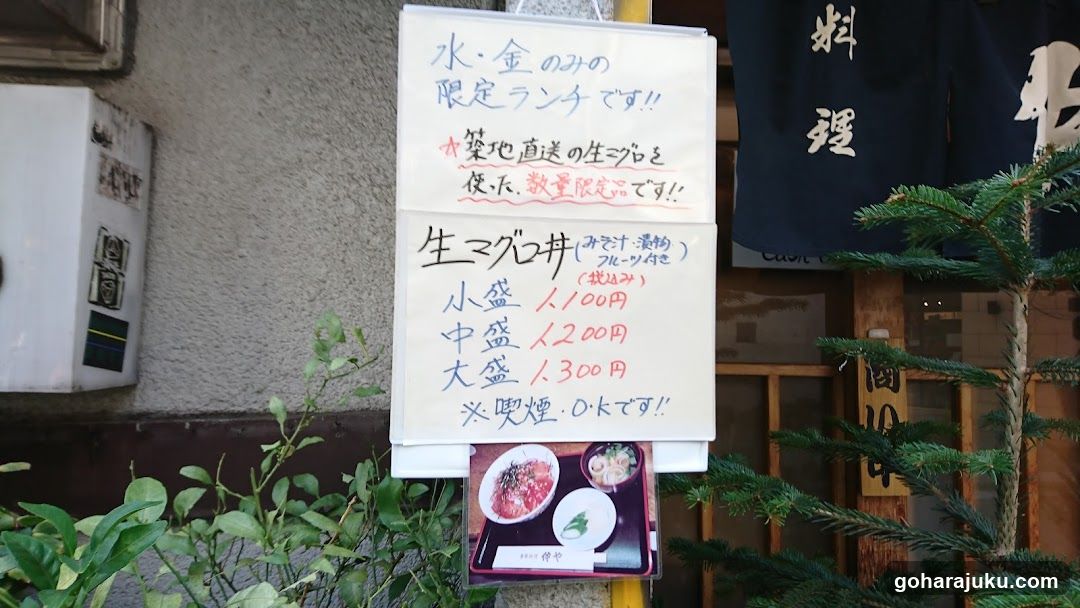 水・金のみの
限定ランチです!!
☆築地直送の生マグロを
使った、数量限定品です!!
生マグロ丼(みそ汁・漬物
フルーツ付き)
(税込み)
小盛 1,100円
中盛 1,200円
大盛 1,300円
※喫煙・O・Kです!!
料理
goharajuku.com